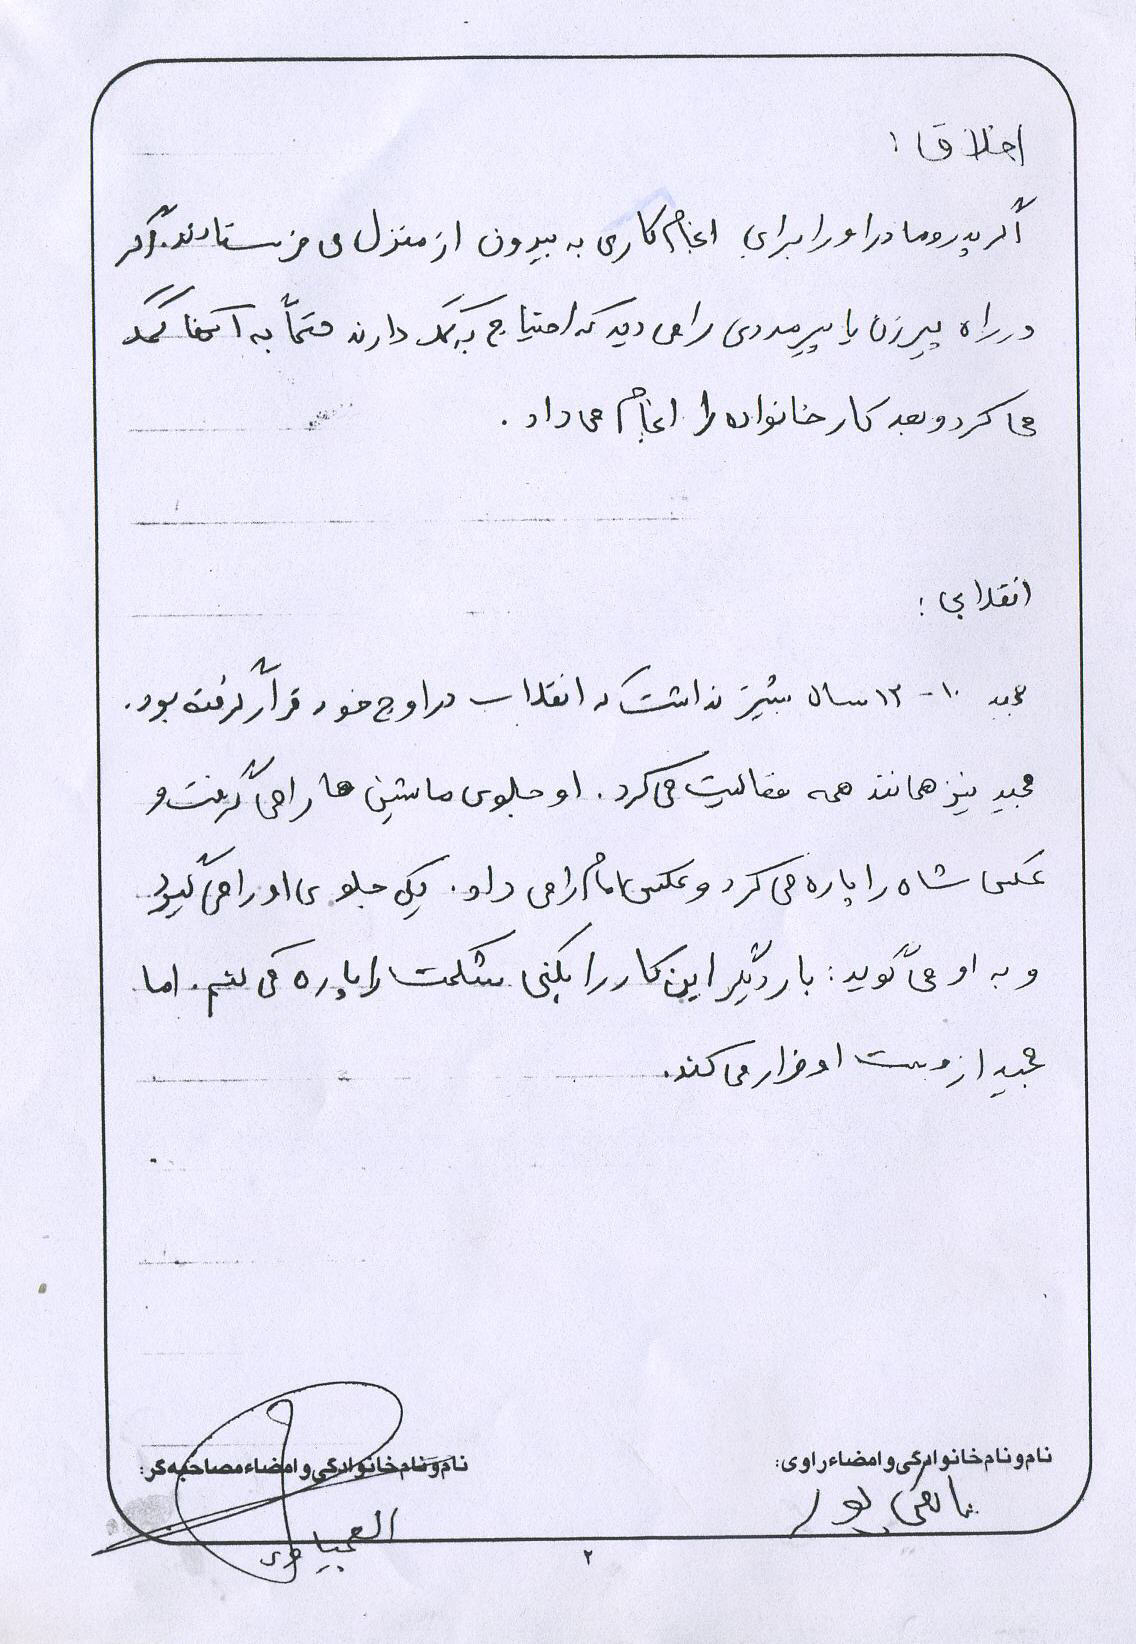 اخلاق :
اگر پدر و مادر او را برای انجام کاری به بیرون از منزل می فرستادند. اگر
در راه پیرزن یا پیرمردی را می دید که احتیاج به کمک دارند حتماً به آنها کمک
می کرد و بعد کار خانواده را انجام می داد .
انقلابی :
مجید ۱۰ - ۱۲ سال بیشتر نداشت که انقلاب در اوج خود قرار گرفته بود.
مجید نیز همانند همه فعالیت می کرد . او جلوی ماشین ها را می گرفت و
عکس شاه را پاره می کرد و عکس امام را می داد . یکی جلوی او را می گیرد
و به او می گوید : بار دیگر این کار را بکنی شکمت را پاره می کنم . اما
مجید از دست او فرار می کند.
نام و نام خانوادگی و امضاء راوی:
نام و نام خانوادگی و امضاء مصاحبه گر:
۲